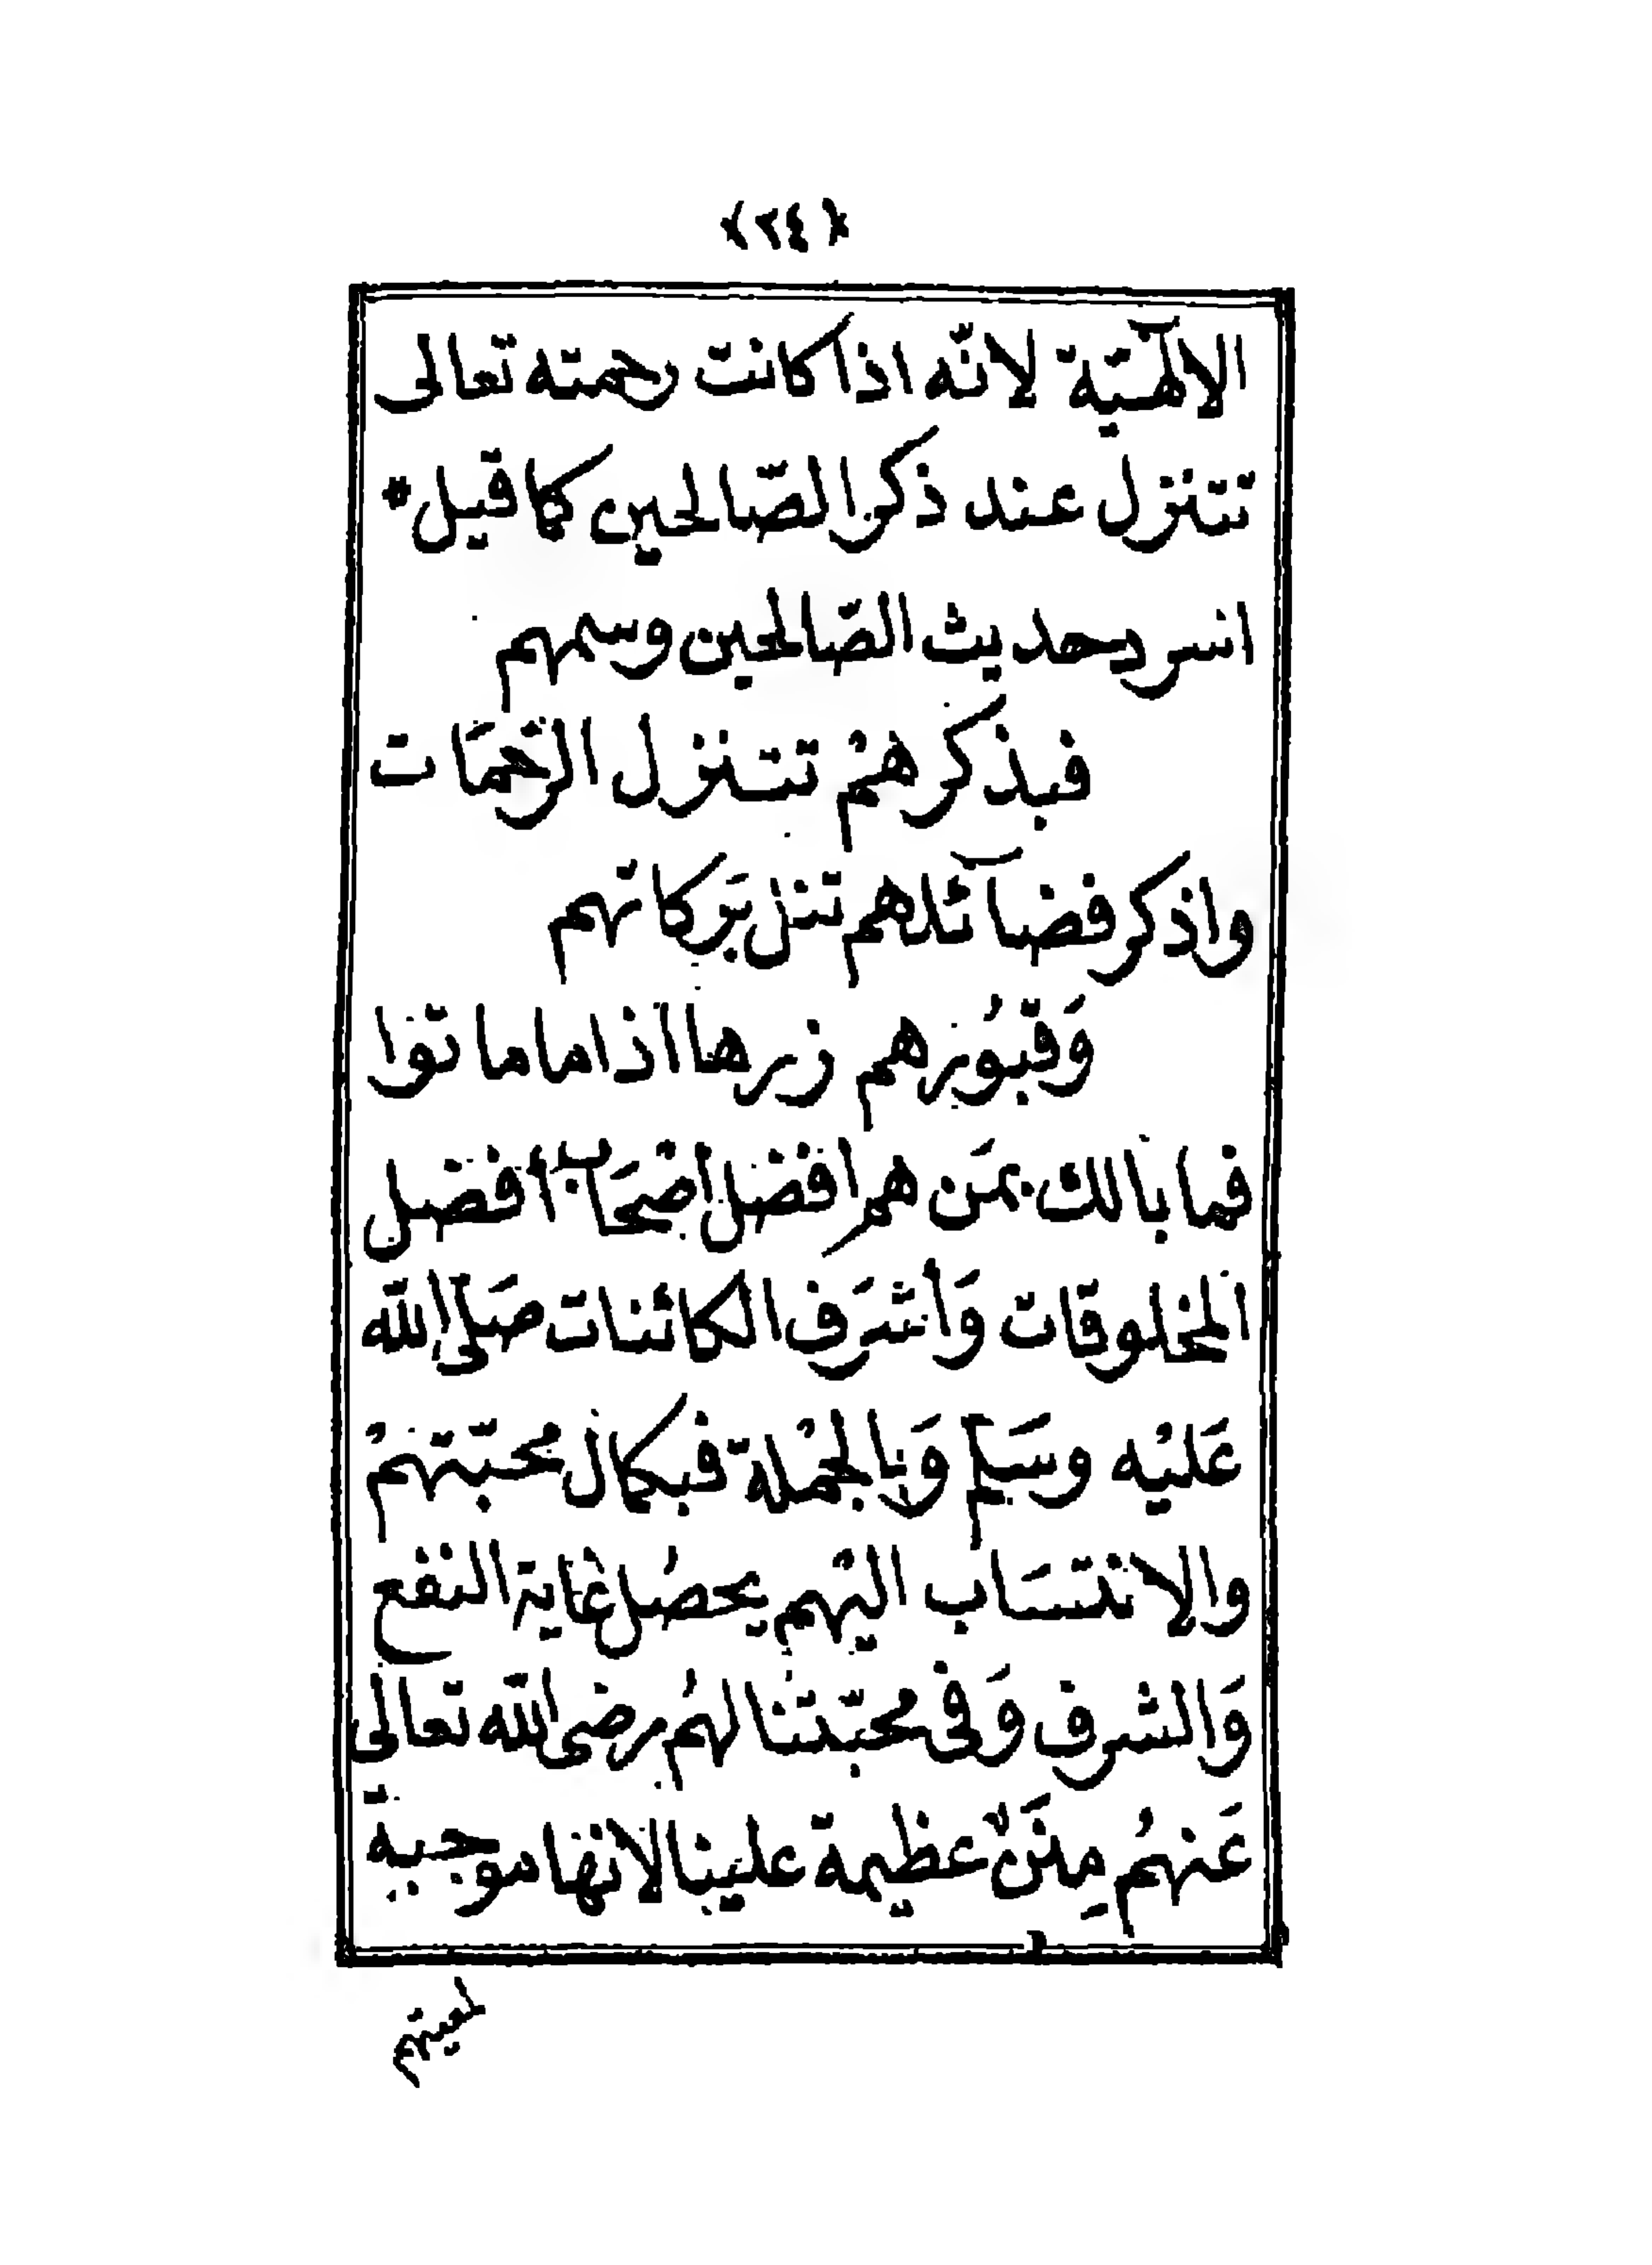 ﴿٢٤﴾
الالٓهيّة لانّه اذا كانت رحمته تعالى
تتنزل عند ذكر الصّالحين كما قيل *
اسرد حديث الصّالحين وسمهم
فبذكرهمْ تتنزل الرّحمَات
واذكر فضآئلهم تنل بَركاتهم
وَقبُورهم زرها اذا ما ماتوا
فما بالك بمَن هم افضل اصْحَاب أفضل
المخلوقات وَأشرَف الكائنات صَلى الله
عَليْه وسَلم وَبالجمْلة فبكمال محبّتهمْ
والانتسَاب اليْهم يحصُل غاية النفع
وَالشرف وَفى محبّتنا لهُم رضى الله تعالى
عَنهُم مِنَنٌ عظيمة علينا لانها موجبة
لمعيتهم